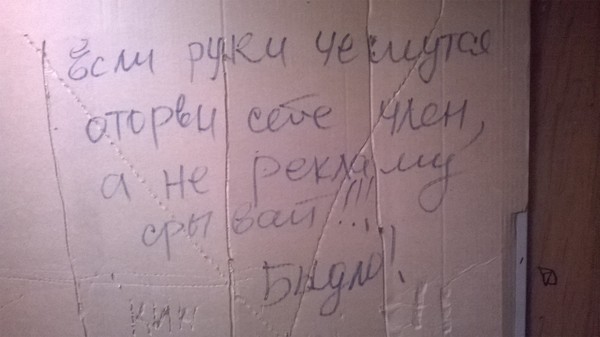 Если руки чешутся
оторви себе член,
а не рекламу
срывай!!!
Быдло!